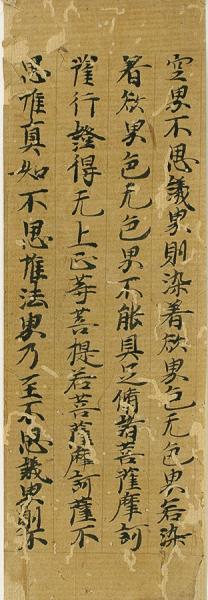 空界不思議界則染著欲界色无色界若染
著欲界色无色界不能具足脩諸菩薩摩訶
薩行證得无上正等菩提若菩薩摩訶薩不
思惟真如不思惟法界乃至不思議界則不